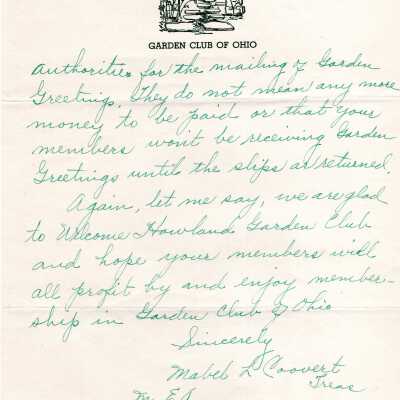 GARDEN CLUB OF OHIO
Authorities for the mailing of Garden
Greetings. They do not mean any more
money to be paid or that your
members won't be receiving Garden
Greetings until the slips are returned.
Again, let me say, we are glad
to Welcome Howland Garden Club
and hope your members will
all profit by and enjoy member-
ship in Garden Club of Ohio
Sincerely
Mabel L Coovert
Treas